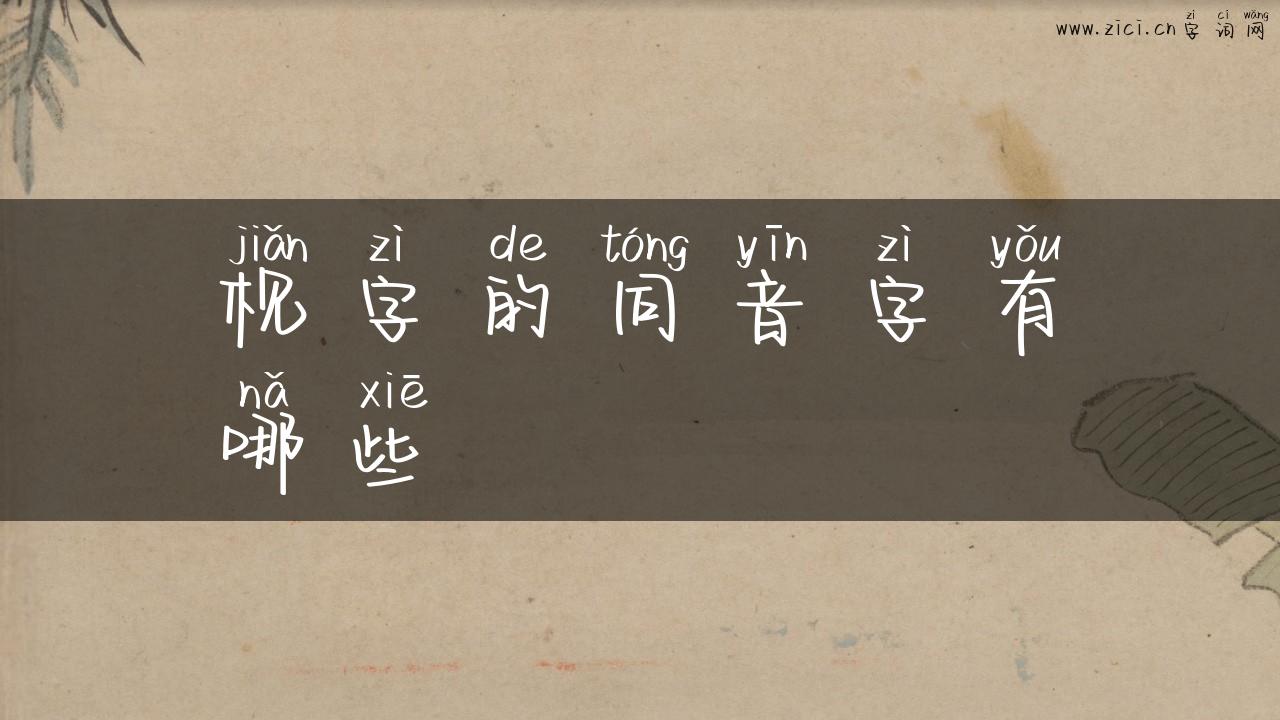 zì cí wǎng
www.zici.cn 字 词 网
jiǎn zì de tóng yīn zì yǒu
枧 字 的 同 音 字 有
nǎ xiē
哪 些